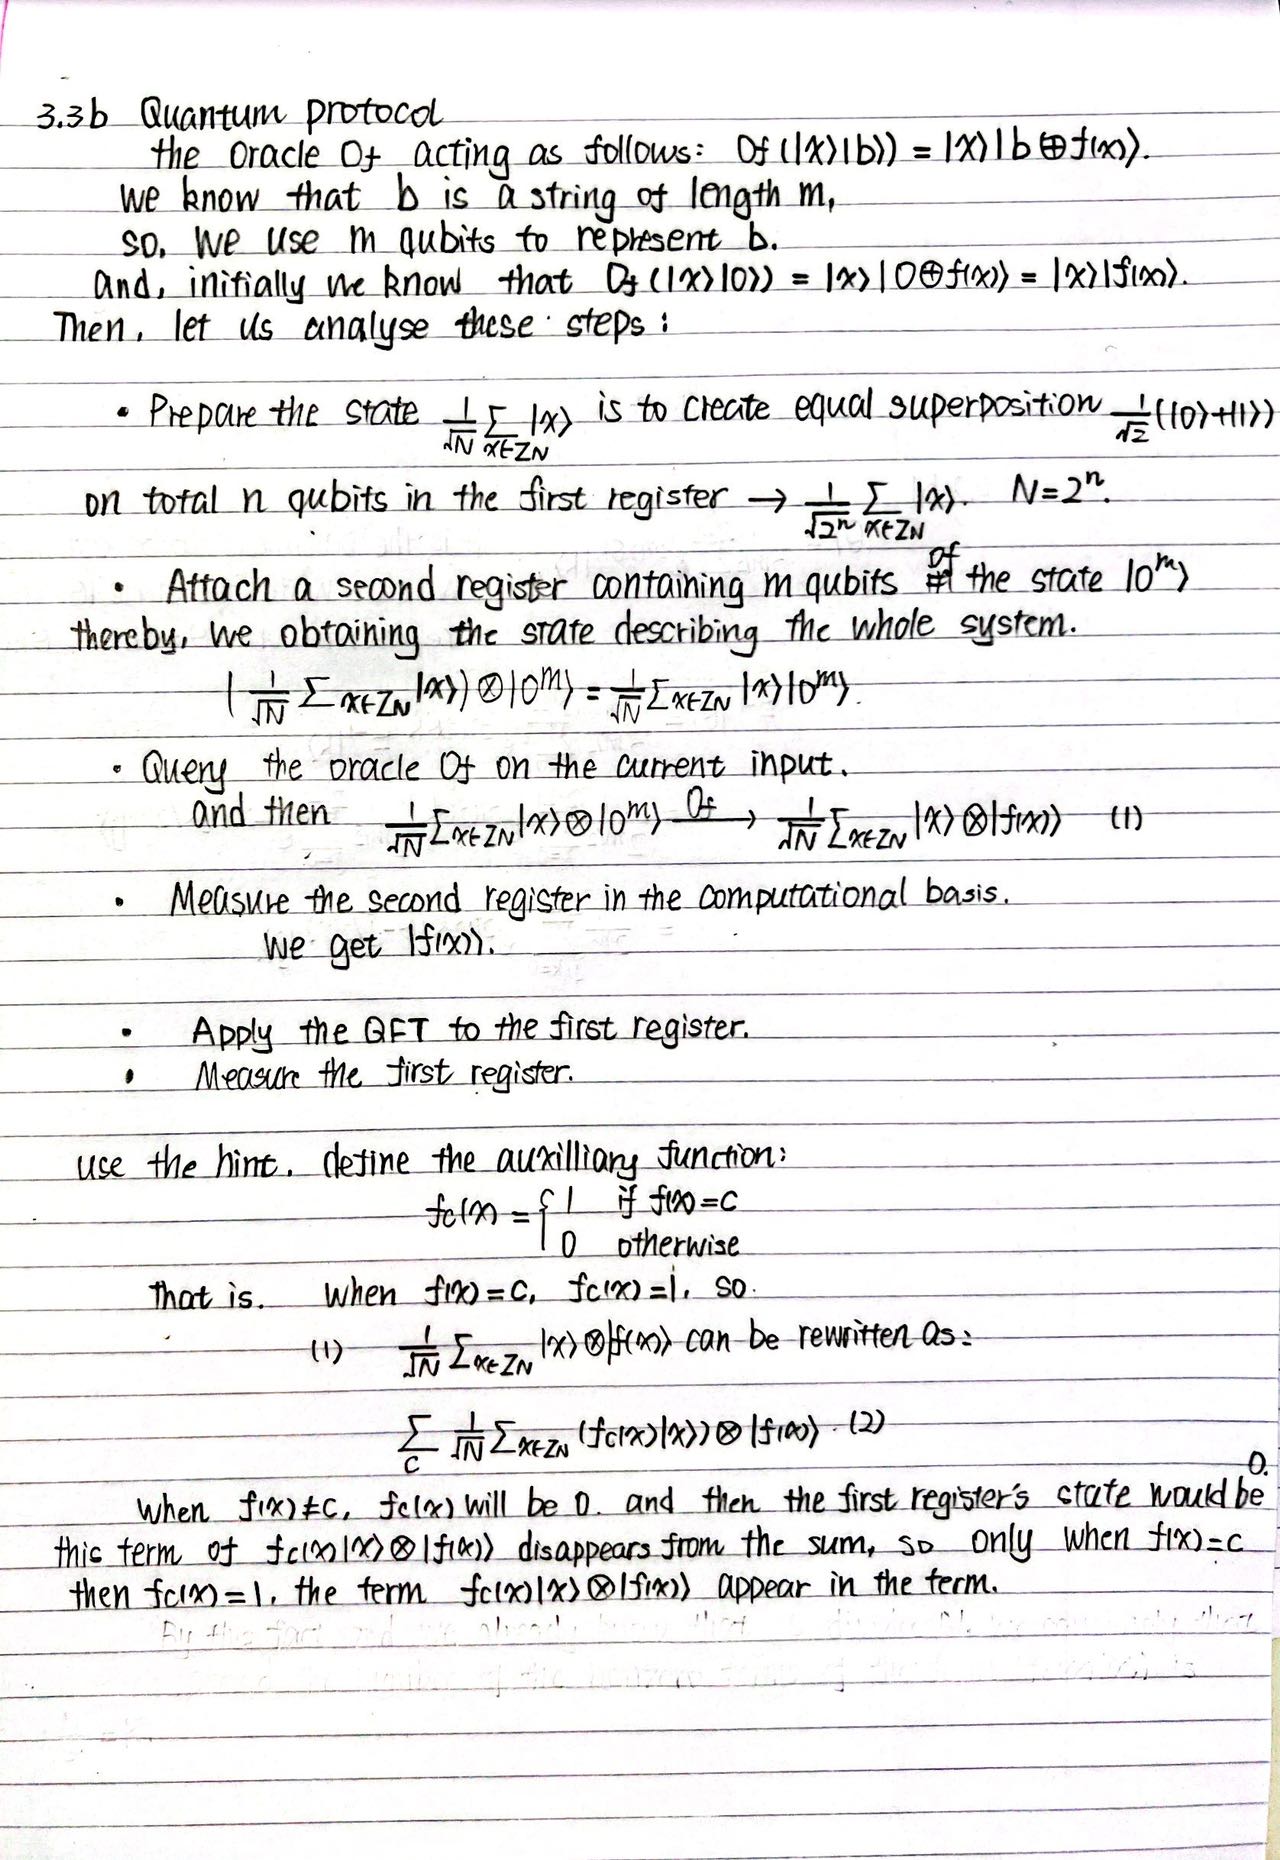 3.3b Quantum protocol
the oracle Of acting as follows: Of(|x⟩|b⟩) = |x⟩|b⊕f(x)⟩.
we know that b is a string of length m,
so, we use m qubits to represent b.
and, initially we know that Of(|x⟩|0⟩) = |x⟩|0⊕f(x)⟩ = |x⟩|f(x)⟩.
Then, let us analyse these steps:
• Prepare the state 1/√N Σ x∈ZN |x⟩ is to create equal superposition 1/√2 (|0⟩+|1⟩)
on total n qubits in the first register → 1/√2ⁿ Σ x∈ZN |x⟩. N=2ⁿ.
• Attach a second register containing m qubits of the state |0ᵐ⟩
thereby, we obtaining the state describing the whole system.
(1/√N Σ x∈ZN |x⟩)⊗|0ᵐ⟩ = 1/√N Σ x∈ZN |x⟩|0ᵐ⟩.
• Query the oracle Of on the current input.
and then 1/√N Σ x∈ZN |x⟩⊗|0ᵐ⟩ Of→ 1/√N Σ x∈ZN |x⟩⊗|f(x)⟩ (1)
• Measure the second register in the computational basis.
we get |f(x)⟩.
• Apply the QFT to the first register.
• Measure the first register.
use the hint. define the auxilliary function:
fc(x) = { 1 if f(x)=c
0 otherwise
That is. when f(x)=c, fc(x)=1, so.
(1) 1/√N Σ x∈ZN |x⟩⊗|f(x)⟩ can be rewritten as:
Σ c 1/√N Σ x∈ZN (fc(x)|x⟩)⊗|f(x)⟩. (2)
when f(x)≠c, fc(x) will be 0. and then the first register's state would be 0.
this term of fc(x)|x⟩⊗|f(x)⟩ disappears from the sum, so only when f(x)=c
then fc(x)=1, the term fc(x)|x⟩⊗|f(x)⟩ appear in the term.